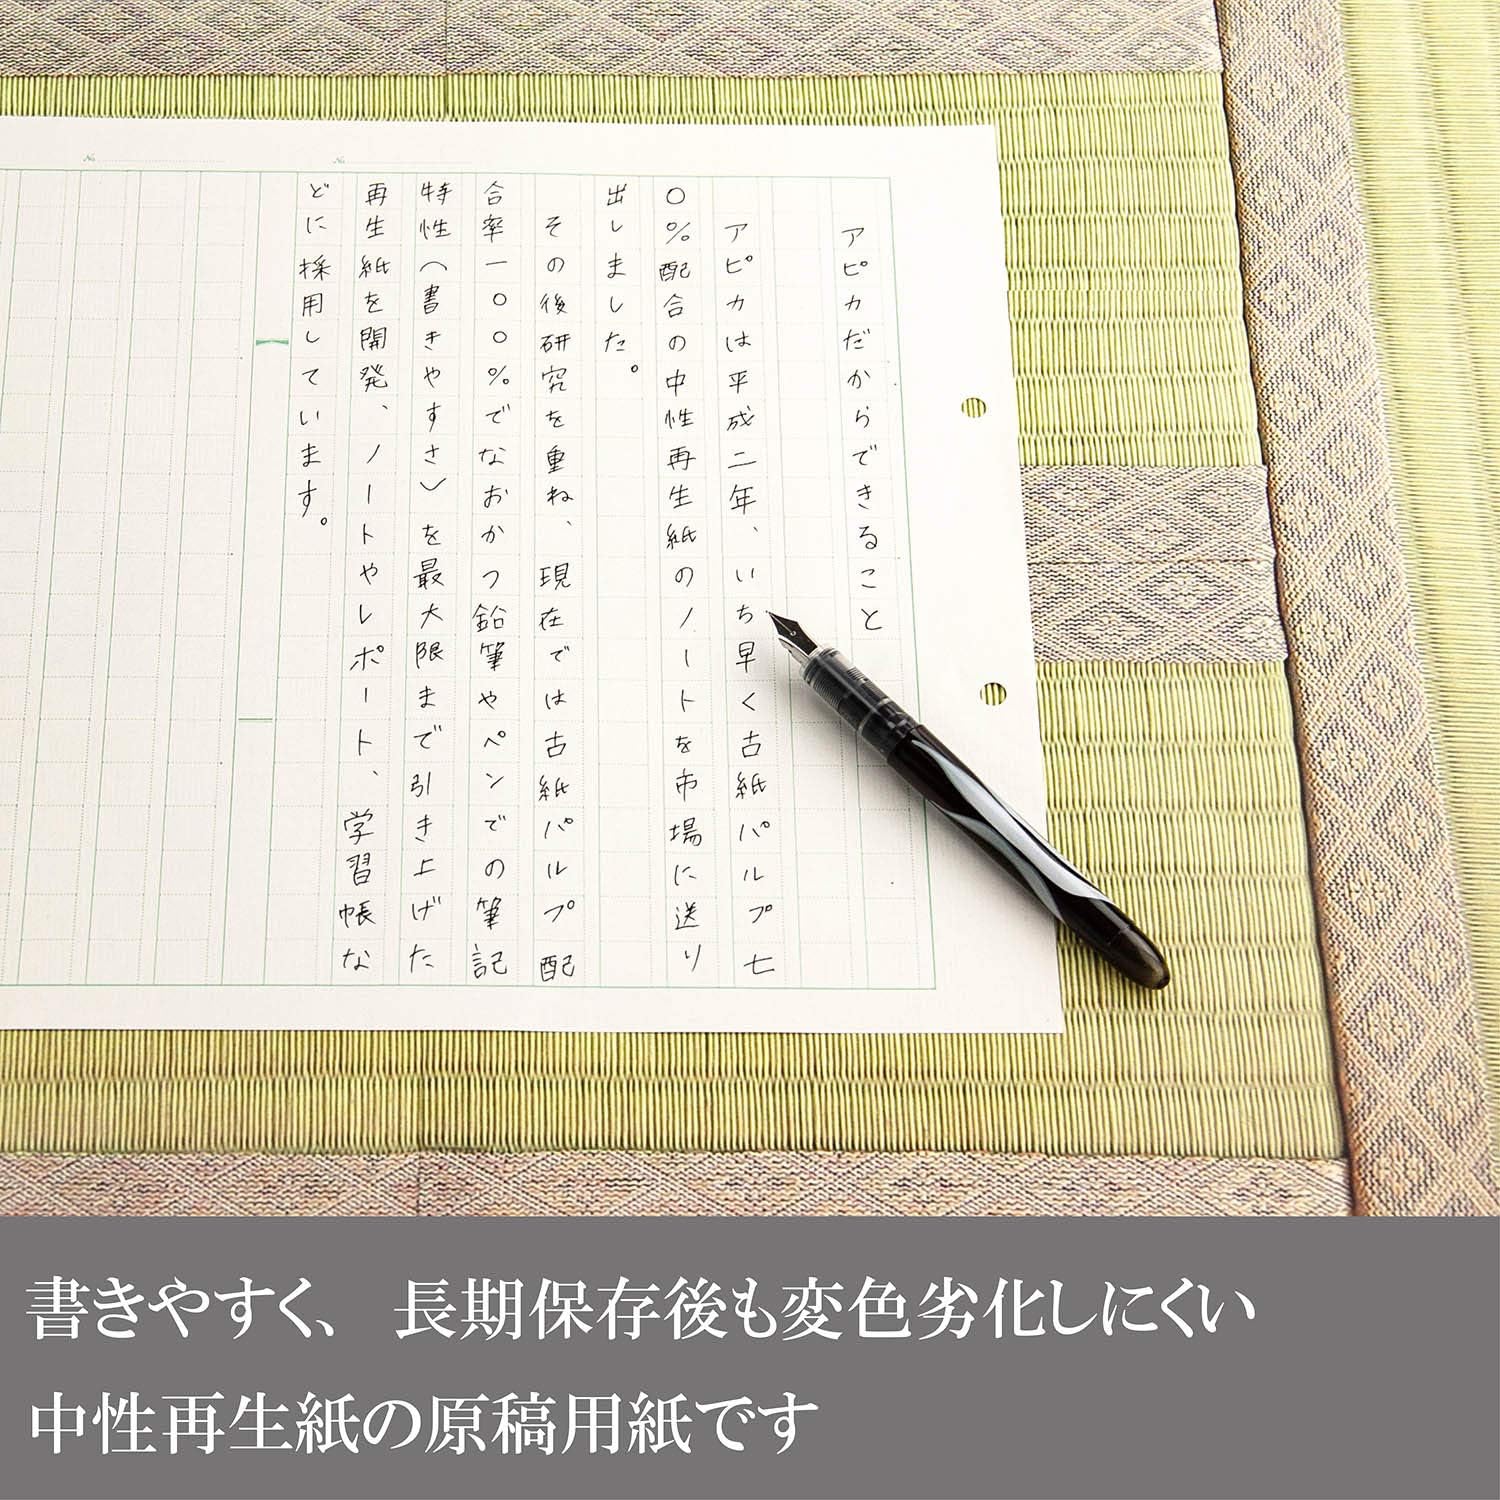 アピカだからできること
アピカは平成二年、いち早く古紙パルプ七
〇%配合の中性再生紙のノートを市場に送り
出しました。
その後研究を重ね、現在では古紙パルプ配
合率一〇〇%でなおかつ鉛筆やペンでの筆記
特性(書きやすさ)を最大限まで引き上げた
再生紙を開発、ノートやレポート、学習帳な
どに採用しています。
No.
No.
書きやすく、長期保存後も変色劣化しにくい
中性再生紙の原稿用紙です